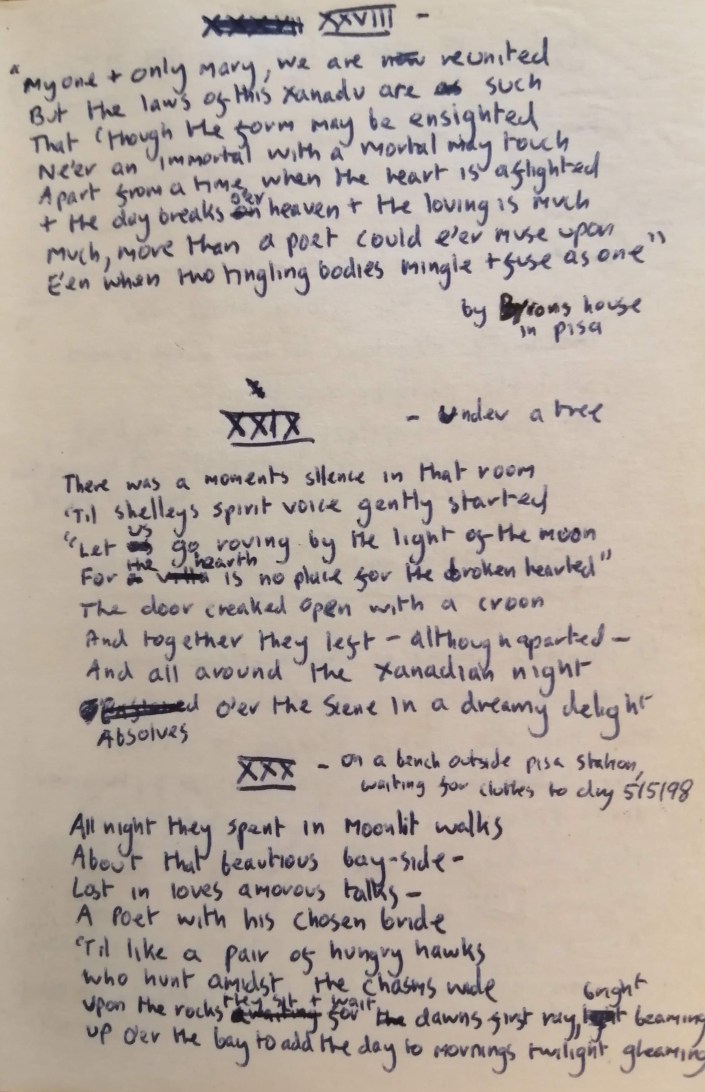 XXVIII -
"My one + only Mary, we are now reunited
But the laws of this Xanadu are as such
That 'though the form may be ensighted
Ne'er an immortal with a mortal may touch
Apart from a time, when the heart is aflighted
+ the day breaks o'er heaven + the loving is much
Much, more than a poet could e'er muse upon
E'en when two tingling bodies mingle + fuse as one"
by Byrons house
in pisa
XXIX - under a tree
There was a moments silence in that room
'Til shelleys spirit voice gently started
"Let us go roving by the light of the moon
For the hearth is no place for the broken hearted"
The door creaked open with a croon
And together they left - although aparted -
And all around the Xanadian night
Absolves o'er the scene in a dreamy delight
XXX - on a bench outside pisa station,
waiting for clothes to dry 5/5/98
All night they spent in Moonlit walks
About that beautious bay-side -
Lost in loves amorous talks -
A Poet with his chosen bride
'Til like a pair of hungry hawks
who hunt amidst the chasms wide
upon the rocks they sit + wait for dawns first ray, bright beaming
up o'er the bay to add the day to mornings twilight gleaming